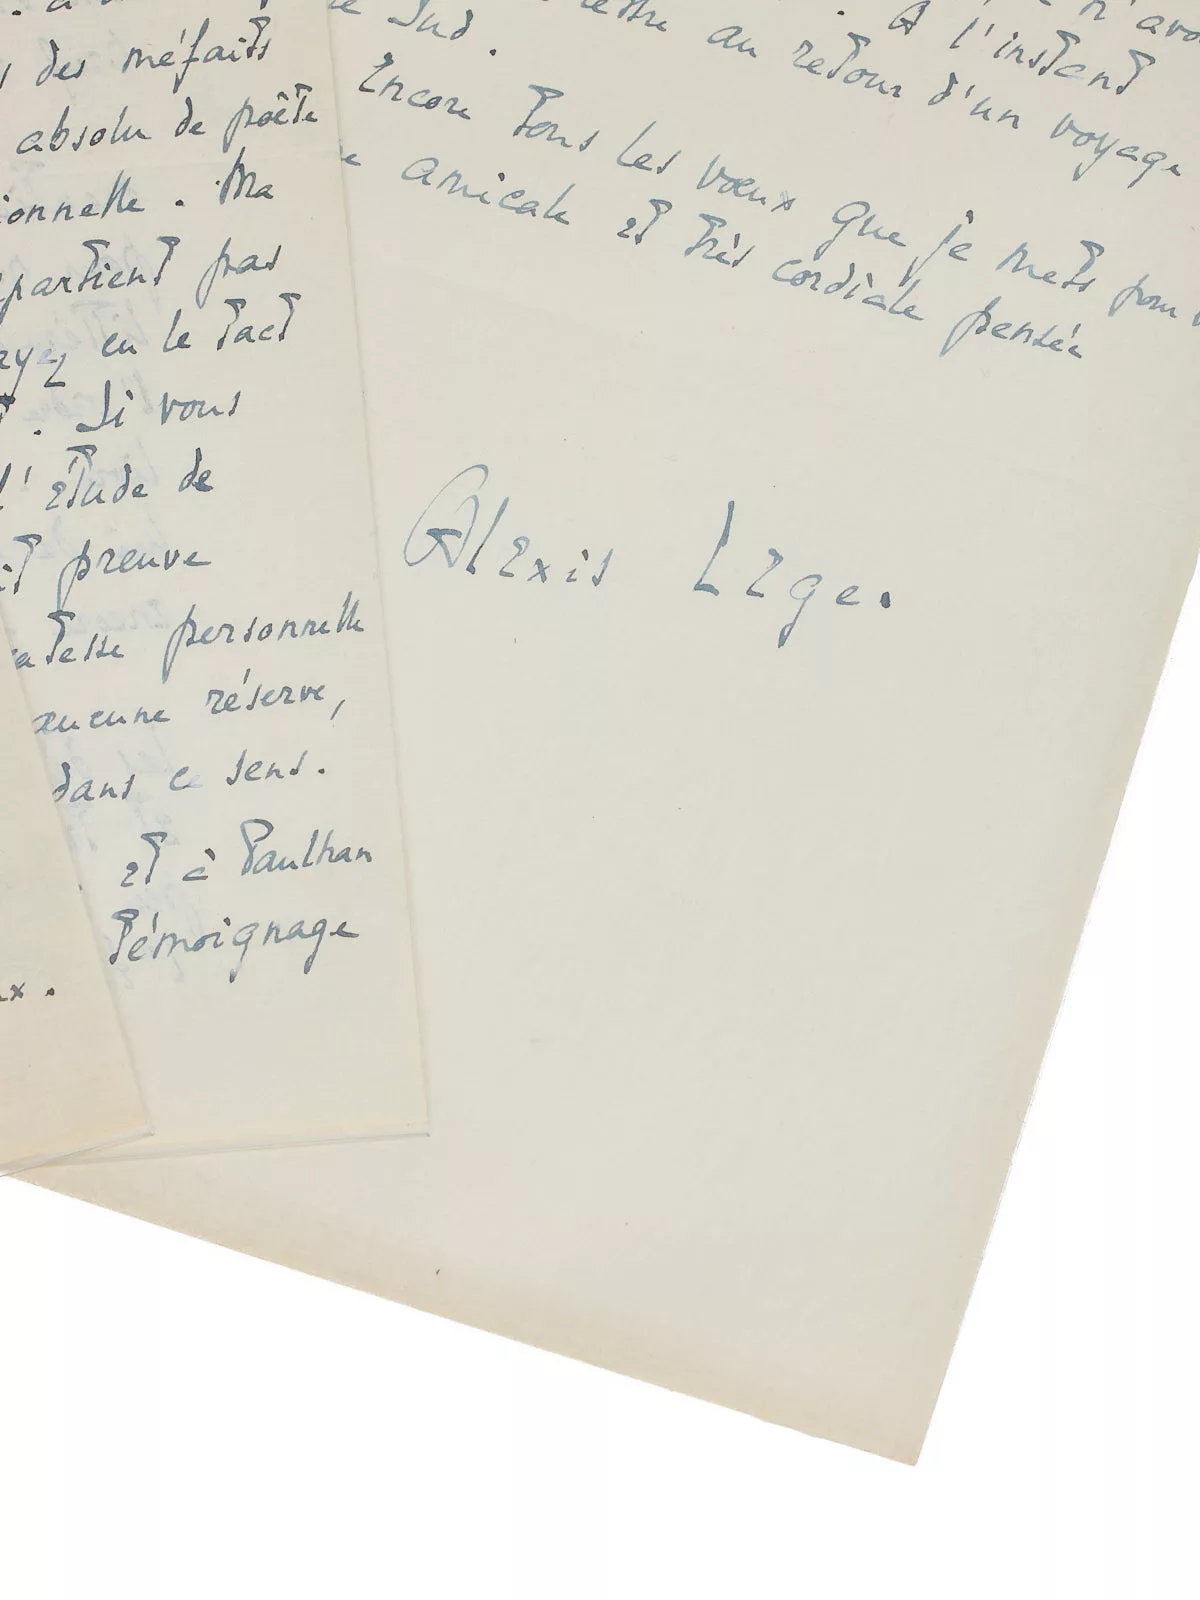 des méfaits
absolu de poète
ionnelle. Ma
partient pas
ayez eu le tact
. Si vous
l'étude de
preuve
personnelle
aucune réserve,
dans ce sens.
et à Paulhan
témoignage
x.
n'avo
A l'instant
Sud.
lettre au retour d'un voyage
Encore tous les vœux que je mets pour
amicale et très cordiale pensée
Alexis Léger